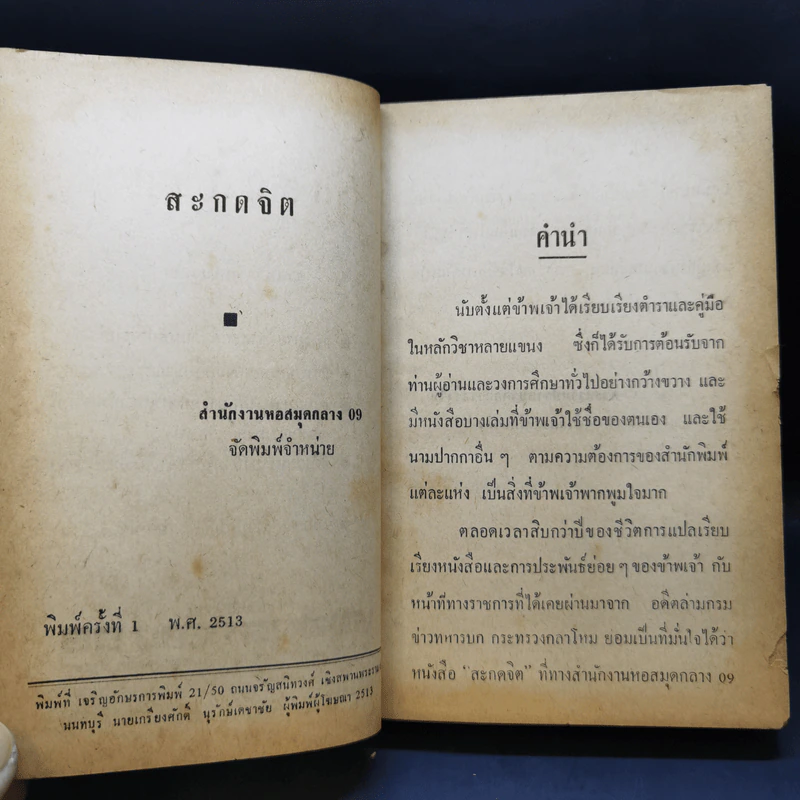 สะกดจิต
สำนักงานหอสมุดกลาง 09
จัดพิมพ์จำหน่าย
พิมพ์ครั้งที่ 1 พ.ศ. 2513
พิมพ์ที่ เจริญอักษรการพิมพ์ 21/50 ถนนจรัญสนิทวงศ์ เชิงสพาน
นนทบุรี นายเกรียงศักดิ์ นุรักษ์เดชาชัย ผู้พิมพ์ผู้โฆษณา 2513
คำนำ
นับตั้งแต่ข้าพเจ้าได้เรียบเรียงตำราและคู่มือ
ในหลักวิชาหลายแขนง ซึ่งก็ได้รับการต้อนรับจาก
ท่านผู้อ่านและวงการศึกษาทั่วไปอย่างกว้างขวาง และ
มีหนังสือบางเล่มที่ข้าพเจ้าใช้ชื่อของตนเอง และใช้
นามปากกาอื่น ๆ ตามความต้องการของสำนักพิมพ์
แต่ละแห่ง เป็นสิ่งที่ข้าพเจ้าพากพูมใจมาก
ตลอดเวลาสิบกว่าปีของชีวิตการแปลเรียบ
เรียงหนังสือและการประพันธ์ย่อย ๆ ของข้าพเจ้า กับ
หน้าที่ทางราชการที่ได้เคยผ่านมาจาก อดีตล่ามกรม
ข่าวทหารบก กระทรวงกลาโหม ย่อมเป็นที่มั่นใจได้ว่า
หนังสือ "สะกดจิต" ที่ทางสำนักงานหอสมุดกลาง 09